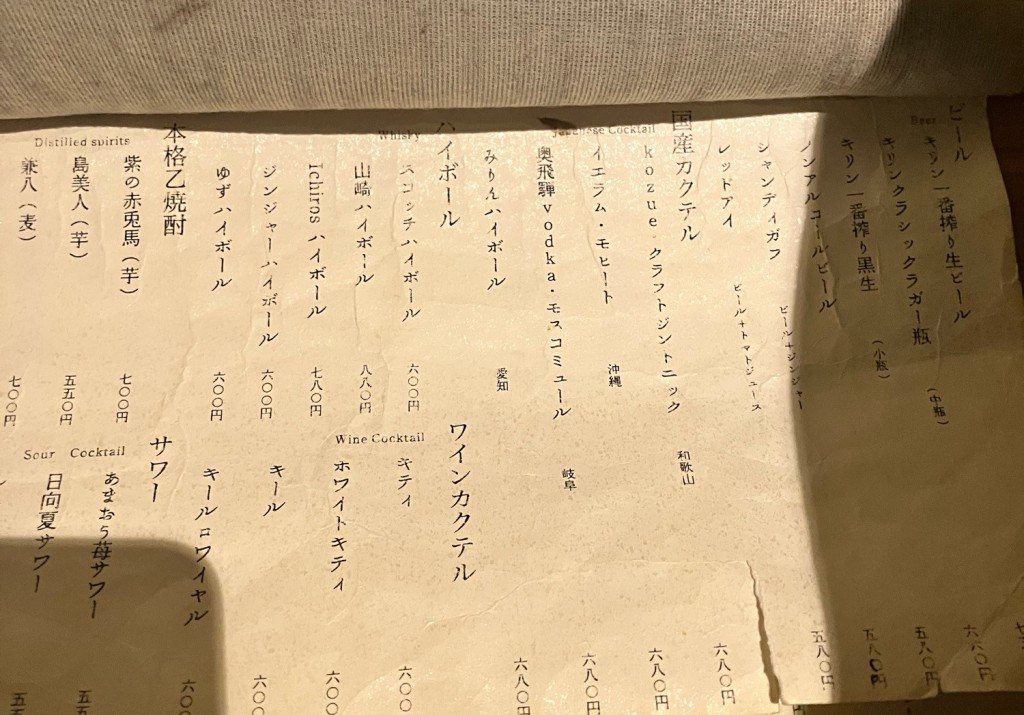 ビール
Beer
キリン一番搾り生ビール
キリンクラシックラガー瓶
（中瓶）
キリン一番搾り黒生
（小瓶）
ノンアルコールビール
シャンディガフ
ビール＋ジンジャー
レッドアイ
ビール＋トマトジュース
六八〇円
五八〇円
五八〇円
五八〇円
国産カクテル
Japanese Cocktail
kozue・クラフトジントニック
和歌山
六八〇円
イエラム・モヒート
沖縄
六八〇円
奥飛騨vodka・モスコミュール
岐阜
六八〇円
みりんハイボール
愛知
六八〇円
ハイボール
Whisky
スコッチハイボール
六〇〇円
山崎ハイボール
八八〇円
Ichirosハイボール
七八〇円
ジンジャーハイボール
六〇〇円
ゆずハイボール
六〇〇円
本格乙焼酎
Distilled spirits
紫の赤兎馬（芋）
七〇〇円
島美人（芋）
五五〇円
兼八（麦）
七〇〇円
ワインカクテル
Wine Cocktail
キティ
六〇〇
ホワイトキティ
六〇〇
キール
六〇〇
キールロワイヤル
六〇〇
サワー
Sour Cocktail
あまおう苺サワー
五五
日向夏サワー
五五